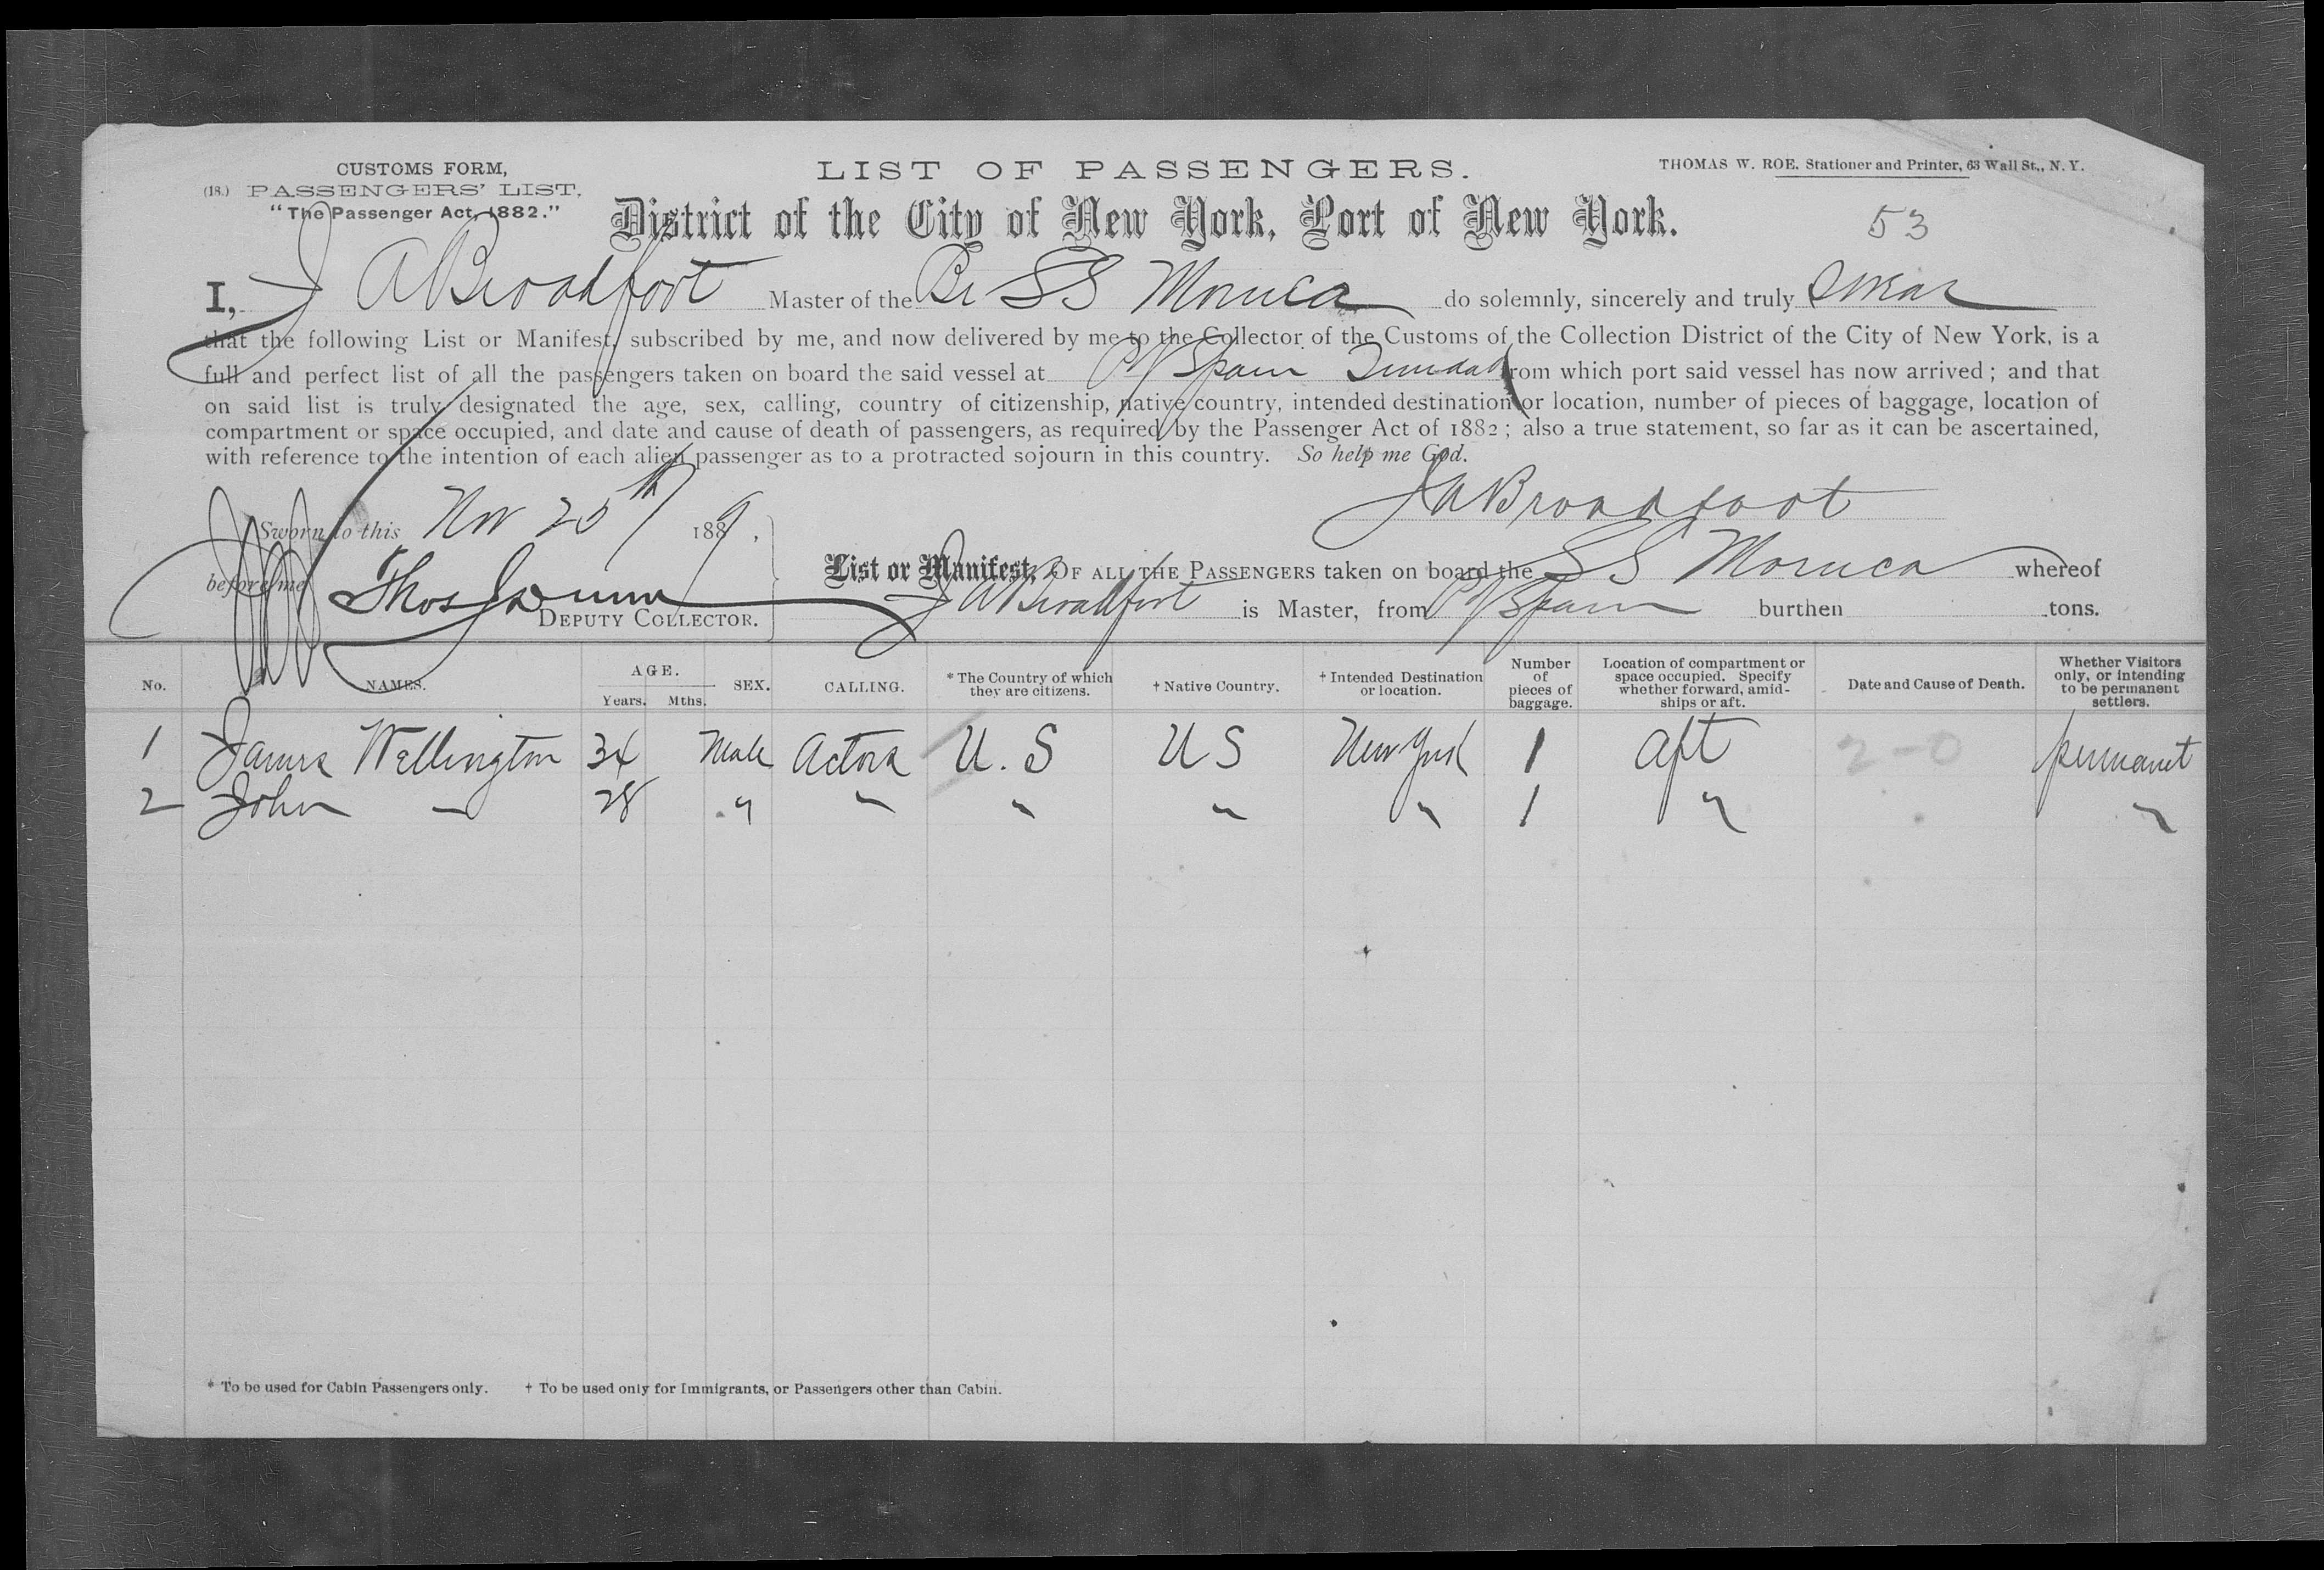 CUSTOMS FORM,
(18.) PASSENGERS' LIST.
"The Passenger Act, 1882."
LIST OF PASSENGERS.
THOMAS W. ROE. Stationer and Printer, 63 Wall St., N. Y.
District of the City of New York, Port of New York.
53
I, J A Broadfoot Master of the Br SS Moruca do solemnly, sincerely and truly swear
that the following List or Manifest, subscribed by me, and now delivered by me to the Collector of the Customs of the Collection District of the City of New York, is a
full and perfect list of all the passengers taken on board the said vessel at P Spain from which port said vessel has now arrived; and that
on said list is truly designated the age, sex, calling, country of citizenship, native country, intended destination or location, number of pieces of baggage, location of
compartment or space occupied, and date and cause of death of passengers, as required by the Passenger Act of 1882; also a true statement, so far as it can be ascertained,
with reference to the intention of each alien passenger as to a protracted sojourn in this country. So help me God.
J A Broadfoot
Sworn to this Nov 25th 1889,
before me Thos J Dunn
DEPUTY COLLECTOR.
List or Manifest, OF ALL THE PASSENGERS taken on board the SS Moruca whereof
J A Broadfoot is Master, from P Spain burthen tons.
No. NAMES. AGE. Years. Mths. SEX. CALLING. * The Country of which they are citizens. † Native Country. † Intended Destination or location. Number of pieces of baggage. Location of compartment or space occupied. Specify whether forward, amidships or aft. Date and Cause of Death. Whether Visitors only, or intending to be permanent settlers.
1 James Wellington 34 Male Actors U. S U S New York 1 aft 2-0 permanent
2 John — 28 " " " " " 1 " "
* To be used for Cabin Passengers only. † To be used only for Immigrants, or Passengers other than Cabin.